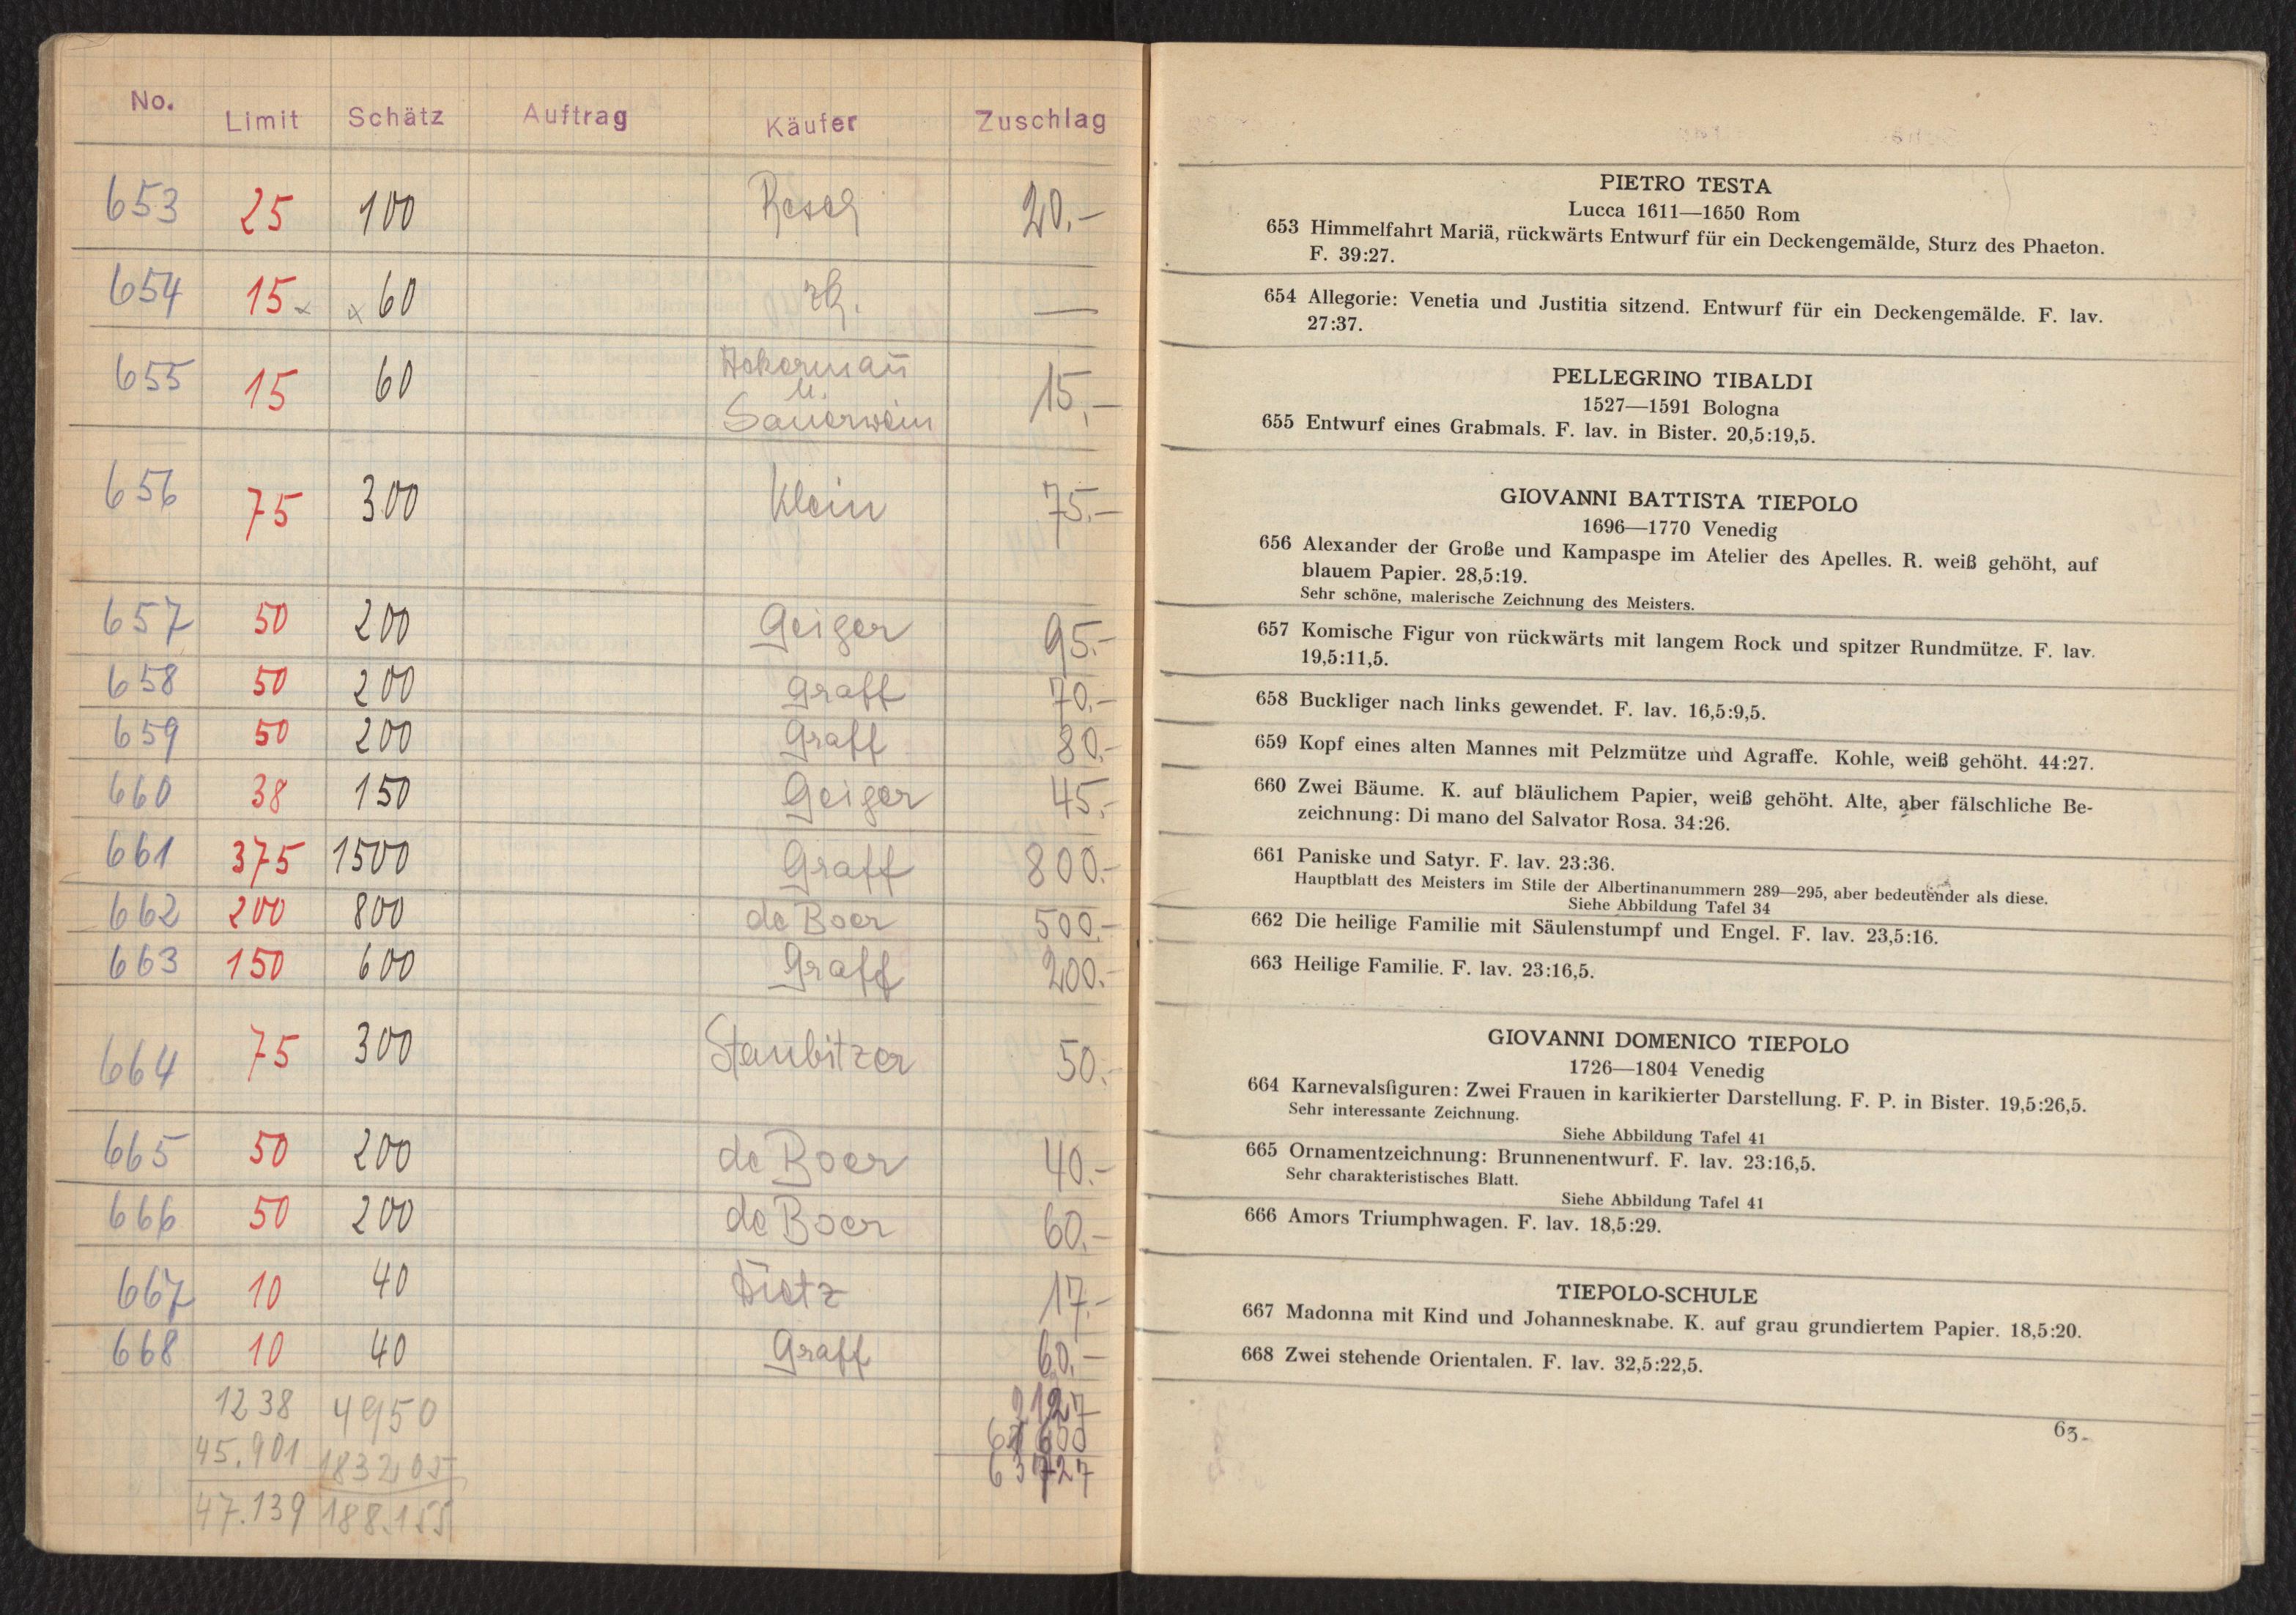 No. Limit Schätz Auftrag Käufer Zuschlag
653 25 100 Resch 20.-
654 15 x x 60 rh. —
655 15 60 Ackermañ u. Sauerwein 15.-
656 75 300 Klein 75.-
657 50 200 Geiger 95.-
658 50 200 Graff 70.-
659 50 200 Graff 80.-
660 38 150 Geiger 45.-
661 375 1500 Graff 800.-
662 200 800 de Boer 500.-
663 150 600 Graff 200.-
664 75 300 Staubitzer 50.-
665 50 200 de Boer 40.-
666 50 200 de Boer 60.-
667 10 40 Dietz 17.-
668 10 40 Graff 60.-
1238 4950 2127
45.901 183205
47.139 188.155 63727
PIETRO TESTA
Lucca 1611—1650 Rom
653 Himmelfahrt Mariä, rückwärts Entwurf für ein Deckengemälde, Sturz des Phaeton.
F. 39:27.
654 Allegorie: Venetia und Justitia sitzend. Entwurf für ein Deckengemälde. F. lav.
27:37.
PELLEGRINO TIBALDI
1527—1591 Bologna
655 Entwurf eines Grabmals. F. lav. in Bister. 20,5:19,5.
GIOVANNI BATTISTA TIEPOLO
1696—1770 Venedig
656 Alexander der Große und Kampaspe im Atelier des Apelles. R. weiß gehöht, auf
blauem Papier. 28,5:19.
Sehr schöne, malerische Zeichnung des Meisters.
657 Komische Figur von rückwärts mit langem Rock und spitzer Rundmütze. F. lav.
19,5:11,5.
658 Buckliger nach links gewendet. F. lav. 16,5:9,5.
659 Kopf eines alten Mannes mit Pelzmütze und Agraffe. Kohle, weiß gehöht. 44:27.
660 Zwei Bäume. K. auf bläulichem Papier, weiß gehöht. Alte, aber fälschliche Be-
zeichnung: Di mano del Salvator Rosa. 34:26.
661 Paniske und Satyr. F. lav. 23:36.
Hauptblatt des Meisters im Stile der Albertinanummern 289—295, aber bedeutender als diese.
Siehe Abbildung Tafel 34
662 Die heilige Familie mit Säulenstumpf und Engel. F. lav. 23,5:16.
663 Heilige Familie. F. lav. 23:16,5.
GIOVANNI DOMENICO TIEPOLO
1726—1804 Venedig
664 Karnevalsfiguren: Zwei Frauen in karikierter Darstellung. F. P. in Bister. 19,5:26,5.
Sehr interessante Zeichnung.
Siehe Abbildung Tafel 41
665 Ornamentzeichnung: Brunnenentwurf. F. lav. 23:16,5.
Sehr charakteristisches Blatt.
Siehe Abbildung Tafel 41
666 Amors Triumphwagen. F. lav. 18,5:29.
TIEPOLO-SCHULE
667 Madonna mit Kind und Johannesknabe. K. auf grau grundiertem Papier. 18,5:20.
668 Zwei stehende Orientalen. F. lav. 32,5:22,5.
63